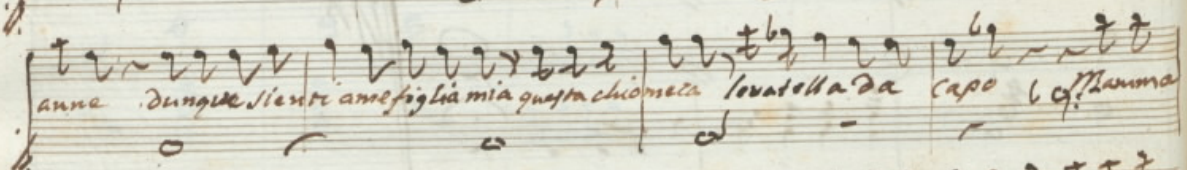 anne dunque sienti a me figlia mia questa chiomera levatella da capo Mamma